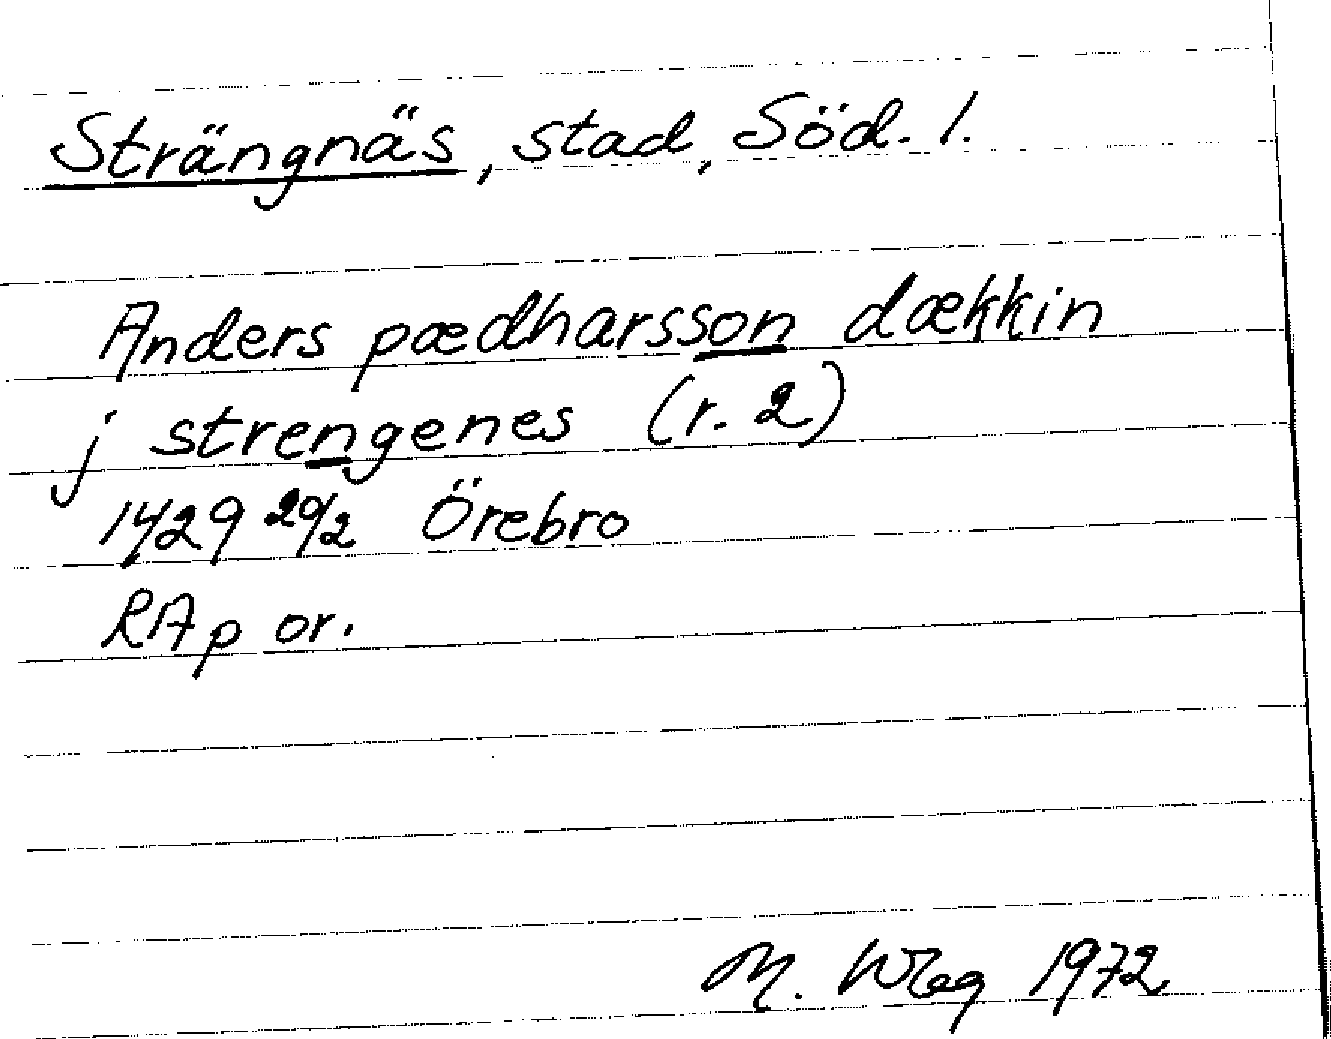 Strängnäs, stad, Söd. l.
Anders pædharsson dækkin
j strengenes (r. 2)
1429 20/2 Örebro
RAp or.
M. Wbg 1972